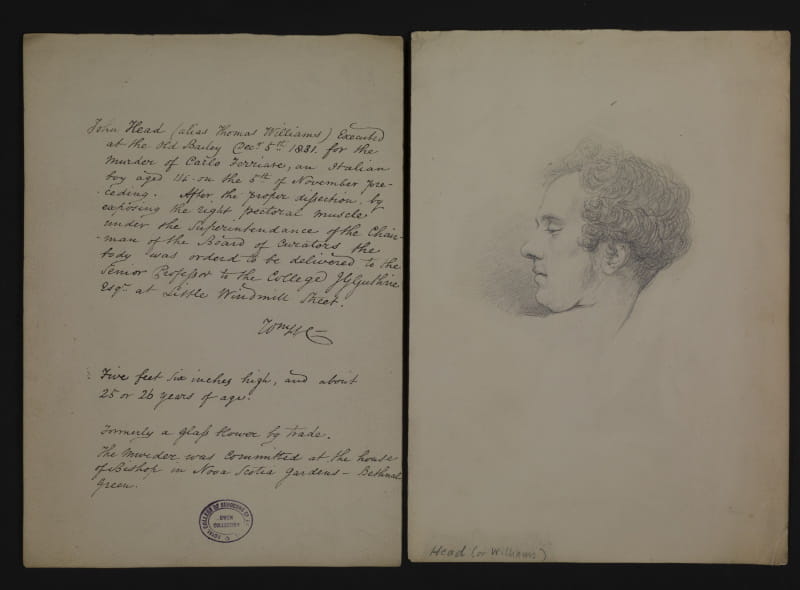 John Head (alias Thomas Williams) Executed
at the Old Bailey Decr 5th 1831. for the
Murder of Carlo Ferriare, an Italian
boy aged 14 - on the 5th of November pre-
ceding. After the proper dissection, by
exposing the right pectoral muscle
under the Superintendance of the Chair-
-man of the Board of Curators the
body was orderd to be delivered to the
Senior Professor to the College
Esqr at Little Windmill Street.
Five feet six inches high, and about
25 or 26 years of age.
Formerly a glass blower by trade.
The Murder was Committed at the house
of Bishop in Nova Scotia Gardens - Bethnal
Green.
ROYAL COLLEGE OF SURGEONS
OWEN
COLLECTION
Head (or Williams)